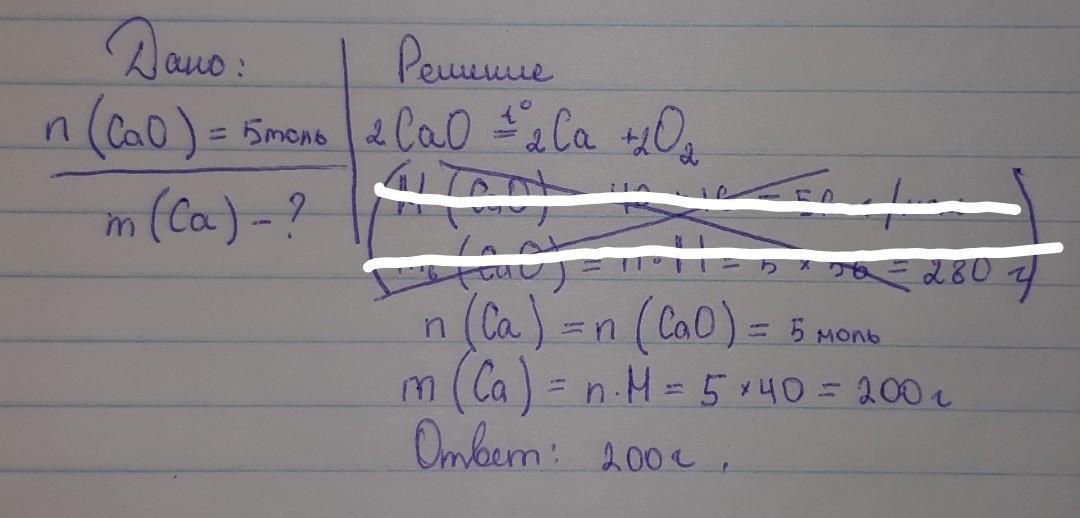 Дано:
n (CaO) = 5 моль
m (Ca) - ?
Решение
2CaO t°= 2Ca + 2O₂
(CaO)
(CaO) = n · M = 5 × 56 = 280 г
n (Ca) = n (CaO) = 5 моль
m (Ca) = n · M = 5 × 40 = 200 г
Ответ: 200 г.